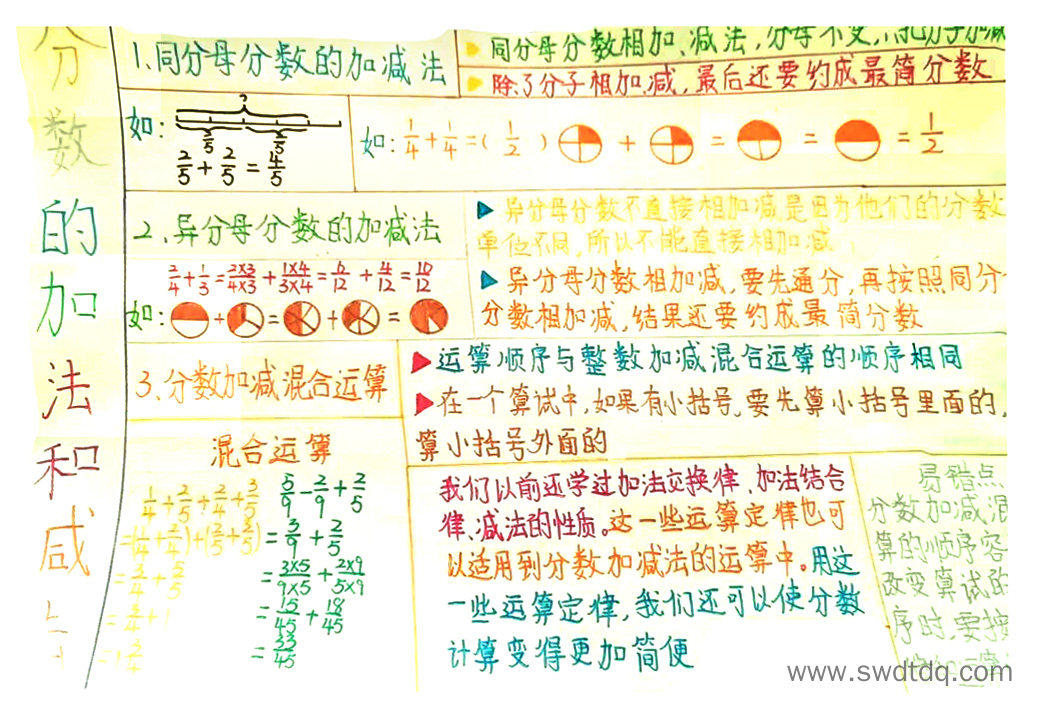 分数的加法和减
1、同分母分数的加减法
同分母分数相加、减法，分母不变，
除了分子相加减，最后还要约成最简分数
如：
?
2/5 2/5
2/5+2/5=4/5
如：1/4+1/4=( 1/2 ) + = = =1/2
2、异分母分数的加减法
2/4+1/3=2×3/4×3+1×4/3×4=6/12+4/12=10/12
如： + = + =
异分母分数不直接相加减是因为他们的分数
单位不同，所以不能直接相加减
异分母分数相加减，要先通分，再按照同分
分数相加减，结果还要约成最简分数
3、分数加减混合运算
运算顺序与整数加减混合运算的顺序相同
在一个算试中，如果有小括号，要先算小括号里面的，
算小括号外面的
混合运算
1/4+2/5+2/4+3/5
=(1/4+2/4)+(2/5+3/5)
=3/4+5/5
=3/4+1
=1 3/4
5/9-2/9+2/5
=3/9+2/5
=3×5/9×5+2×9/5×9
=15/45+18/45
=33/45
我们以前还学过加法交换律、加法结合
律、减法的性质。这一些运算定律也可
以适用到分数加减法的运算中。用这
一些运算定律，我们还可以使分数
计算变得更加简便
易错点
分数加减混
算的顺序容
改变算试的
序时，要按
www.swdtdq.com